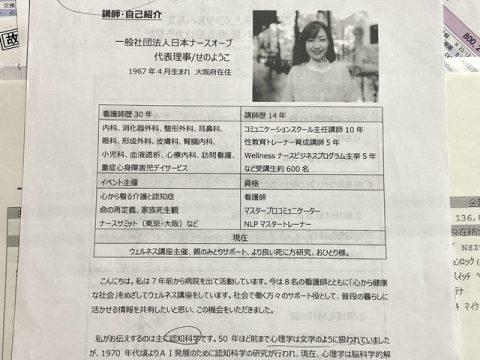 講師・自己紹介
一般社団法人日本ナースオーブ
代表理事/せのようこ
1967年4月生まれ 大阪府在住
看護師歴30年
内科、消化器外科、整形外科、耳鼻科、
眼科、形成外科、皮膚科、腎臓内科、
小児科、血液透析、心療内科、訪問看護、
重症心身障害児デイサービス
講師歴14年
コミュニケーションスクール主任講師10年
性教育トレーナー育成講師5年
Wellnessナースビジネスプログラム主宰5年
など受講生約600名
イベント主催
心から看る介護と認知症
命の再定義、家族死生観
ナースサミット(東京・大阪)など
資格
看護師
マスタープロコミュニケーター
NLPマスタートレーナー
現在
ウェルネス講座主催、親のみとりサポート、より良い死に方研究、おひとり様。
こんにちは。私は7年前から病院を出て活動しています。今は8名の看護師とともに「心から健康
な社会」をめざしてウェルネス講座をしています。社会で働く方々のサポート役として、普段の暮らしに
活かせる情報を共有したいと思い、この機会をいただきました。
私がお伝えするのは主に認知科学です。50年ほど前まで心理学は文学のように扱われていました
が、1970年代頃よりAI発展のために認知科学の研究が行われ、現在、心理学は脳科学的解
故
交換
800
136,